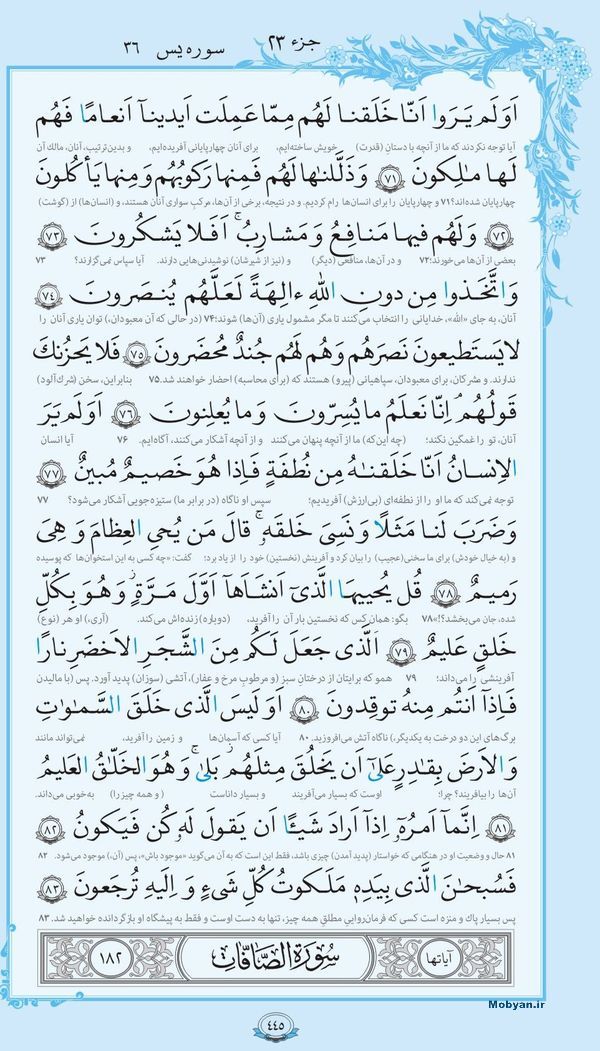 جزء ۲۳
سوره یس ۳۶
اَوَلَم يَرَوا اَنّا خَلَقنا لَهُم مِمّا عَمِلَت اَيدينآ اَنعامًا فَهُم
آیا توجه نکردند که ما از آنچه با دستانِ (قدرت) خویش ساخته‌ایم، برای آنان چهارپایانی آفریده‌ایم، و بدین‌ترتیب، آنان، مالك آن
لَها مالِكونَ ﴿٧١﴾ وَذَلَّلناها لَهُم فَمِنها رَكوبُهُم وَمِنها يَأكُلونَ
چهارپایان شده‌اند؟ ۷۱ و چهارپایان را برای انسان‌ها رام کردیم. و در نتیجه، برخی از آن‌ها، مرکبِ سواری آنان هستند، و (انسان‌ها) از (گوشت)
﴿٧٢﴾ وَلَهُم فيها مَنافِعُ وَمَشارِبُ ۚ اَفَلا يَشكُرونَ ﴿٧٣﴾
بعضی از آن‌ها می‌خورند؛ ۷۲ و در آن‌ها، منافعی (دیگر) و (نیز از شیرشان) نوشیدنی‌هایی دارند. آیا سپاس نمی‌گزارند؟ ۷۳
وَاتَّخَذوا مِن دونِ اللهِ ءالِهَةً لَعَلَّهُم يُنصَرونَ ﴿٧٤﴾
آنان، به جای «الله»، خدایانی را انتخاب می‌کنند تا مگر مشمول یاری (آن‌ها) شوند؛ ۷۴ (در حالی که آن معبودان،) توان یاری آنان را
لايَستَطيعونَ نَصرَهُم وَهُم لَهُم جُندٌ مُحضَرونَ ﴿٧٥﴾ فَلا يَحزُنكَ
ندارند. و مشرکان، برای معبودان، سپاهیانی (پیرو) هستند که (برای محاسبه) احضار خواهند شد. ۷۵ بنابراین، سخن (شرك‌آلود)
قَولُهُم ۘ اِنّا نَعلَمُ ما يُسِرّونَ وَما يُعلِنونَ ﴿٧٦﴾ اَوَلَم يَرَ
آنان، تو را غمگین نکند؛ (چه این‌که) ما از آنچه پنهان می‌کنند و از آنچه آشکار می‌کنند، آگاه‌ایم. ۷۶ آیا انسان
الاِنسانُ اَنّا خَلَقناهُ مِن نُطفَةٍ فَاِذا هُوَ خَصيمٌ مُبينٌ ﴿٧٧﴾
توجه نمی‌کند که ما او را از نطفه‌ای (بی‌ارزش) آفریدیم؛ سپس او ناگاه (در برابر ما) ستیزه‌جویی آشکار می‌شود؟ ۷۷
وَضَرَبَ لَنا مَثَلًا وَنَسِىَ خَلقَهُ ۖ قالَ مَن يُحىِ العِظامَ وَهِىَ
و (به خیال خودش) برای ما سخنی (عجیب) را بیان کرد و آفرینش (نخستین) خود را از یاد برد؛ گفت: «چه کسی به این استخوان‌ها که پوسیده
رَميمٌ ﴿٧٨﴾ قُل يُحييهَا الَّذى اَنشَاَها اَوَّلَ مَرَّةٍ ۖ وَهُوَ بِكُلِّ
شده، جان می‌بخشد؟!» ۷۸ بگو: همان کس که نخستین بار آن را آفرید، (دوباره) زنده‌اش می‌کند. (آری،) او هر (نوع)
خَلقٍ عَليمٌ ﴿٧٩﴾ اَلَّذى جَعَلَ لَكُم مِنَ الشَّجَرِ الاَخضَرِ نارًا
آفرینشی را می‌داند؛ ۷۹ همو که برایتان از درختانِ سبز (و مرطوب مرخ و عفار)، آتشی (سوزان) پدید آورد. پس (با مالیدن
فَاِذآ اَنتُم مِنهُ توقِدونَ ﴿٨٠﴾ اَوَلَيسَ الَّذى خَلَقَ السَّماواتِ
برگ‌های این دو درخت به یکدیگر،) ناگاه آتش می‌افروزید. ۸۰ آیا کسی که آسمان‌ها و زمین را آفرید، نمی‌تواند مانند
وَالاَرضَ بِقادِرٍ عَلىٰ اَن يَخلُقَ مِثلَهُم ۚ بَلىٰ ۚ وَهُوَ الخَلّاقُ العَليمُ
آن‌ها را بیافریند؟ چرا؛ اوست که بسیار می‌آفریند و بسیار داناست (و همه چیز را) به‌خوبی می‌داند.
﴿٨١﴾ اِنَّمآ اَمرُهُ اِذآ اَرادَ شَيـًٔا اَن يَقولَ لَهُ كُن فَيَكونُ ﴿٨٢﴾
۸۱ حال و وضعیت او در هنگامی که خواستار (پدید آمدن) چیزی باشد، فقط این است که به آن می‌گوید «موجود باش»، پس (آن،) موجود می‌شود. ۸۲
فَسُبحانَ الَّذى بِيَدِهِ مَلَكوتُ كُلِّ شَىءٍ وَاِلَيهِ تُرجَعونَ ﴿٨٣﴾
پس بسیار پاك و منزه است کسی که فرمان‌رواییِ مطلق همه چیز، تنها به دست اوست و فقط به پیشگاه او بازگردانده خواهید شد. ۸۳
آیاتها سُورَةُ الصَّافّات ۱۸۲
Mobyan.ir
۴۴۵